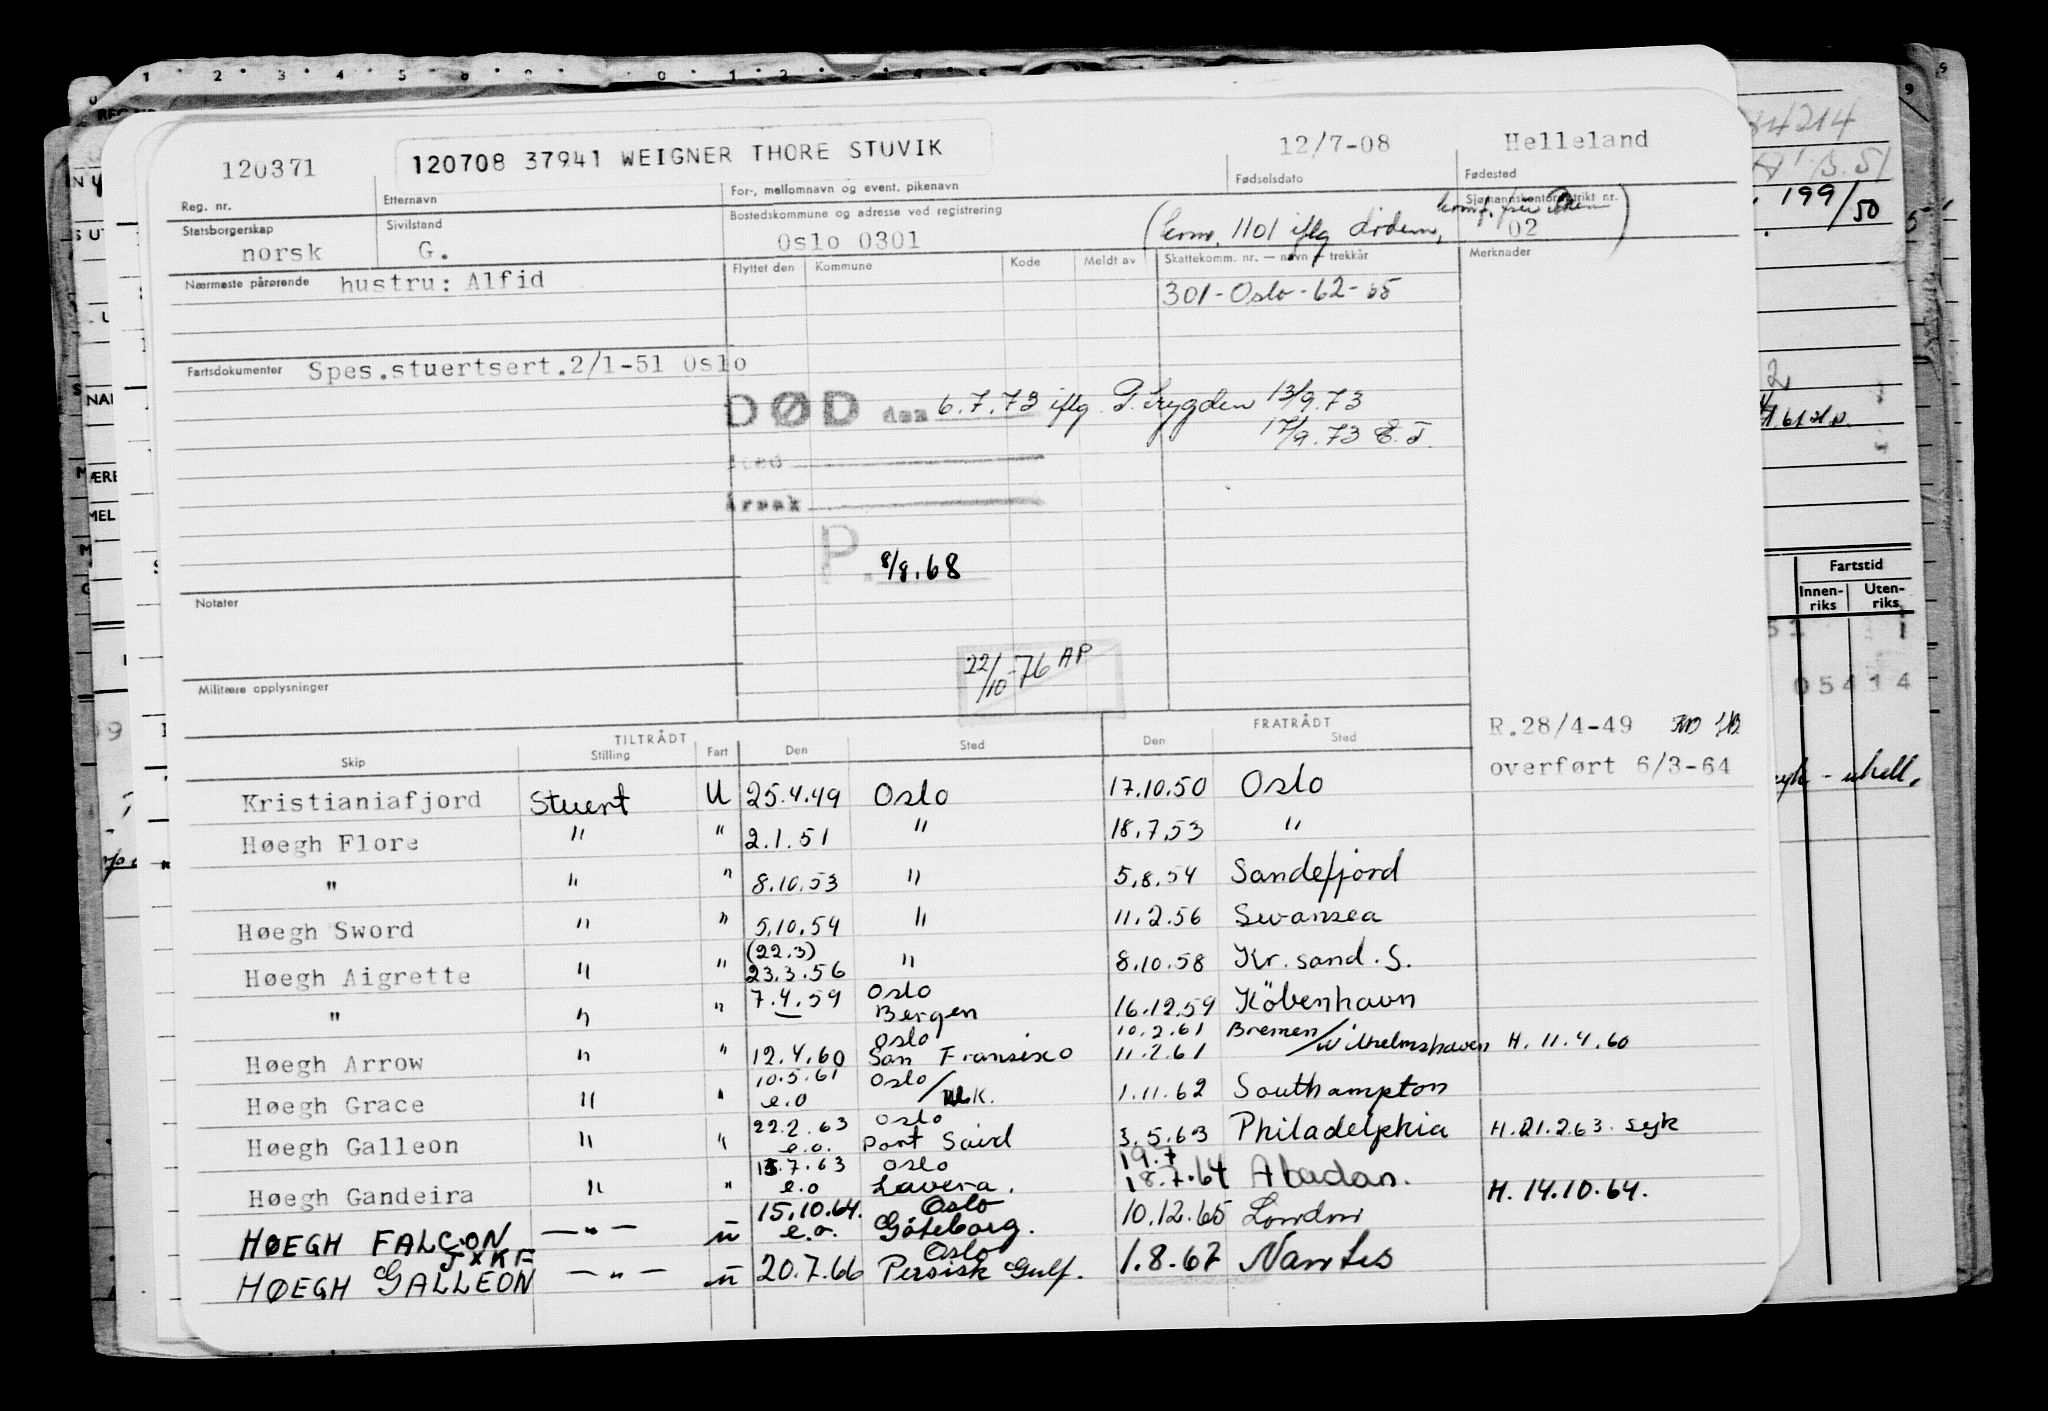 120371
120708 37941 WEIGNER THORE STUVIK
12/7-08
Helleland
Reg. nr.
Etternavn
For-, mellomnavn og event. pikenavn
Fødselsdato
Fødested
Statsborgerskap
Sivilstand
Bostedskommune og adresse ved registrering
Sjømannskontordistrikt nr.
norsk
G.
Oslo 0301
(kom. 1101 iflg
02
Nærmeste pårørende
hustru: Alfid
Flyttet den
Kommune
Kode
Meldt av
Skattekomm. nr. — navn — trekkår
Merknader
301-Oslo-62-65
Fartsdokumenter
Spes.stuertsert.2/1-51 Oslo
DØD den 6.7.73 iflg P. Trygden 13/9.73
17/9.73 E.T.
Sted
Årsak
P. 8/8.68
Notater
22/10-76 AP
Militære opplysninger
TILTRÅDT
FRATRÅDT
R.28/4-49
overført 6/3-64
Skip
Stilling
Fart
Den
Sted
Den
Sted
Kristianiafjord Stuert U 25.4.49 Oslo 17.10.50 Oslo
Høegh Flore " " 2.1.51 " 18.7.53 "
" " " 8.10.53 " 5.8.54 Sandefjord
Høegh Sword " " 5.10.54 " 11.2.56 Swansea
(22.3)
Høegh Aigrette " " 23.3.56 " 8.10.58 Kr.sand.S.
7.4.59 Oslo
" " " Bergen 16.12.59 København
Oslo 10.2.61 Bremen/
Høegh Arrow " " 12.4.60 San Fransisco 11.2.61 Wilhelmshaven H. 11.4.60
10.5.61 Oslo/
Høegh Grace " " e.o UK. 1.11.62 Southampton
22.2.63 Oslo
Høegh Galleon " " e.o. Port Said 3.5.63 Philadelphia H.21.2.63. syk
13.7.63 Oslo 19.7
Høegh Gandeira " " e.o Lavera. 18.7.64 Abadan.
H. 14.10.64.
15.10.64. Oslo
HØEGH FALCON —"— " e.o. Göteborg. 10.12.65 London
JXKF
Oslo
HØEGH GALLEON —"— " 20.7.66 Persisk Gulf. 1.8.67 Nantes
84214
199/50
Fartstid
Innen-riks
Uten-riks
05414